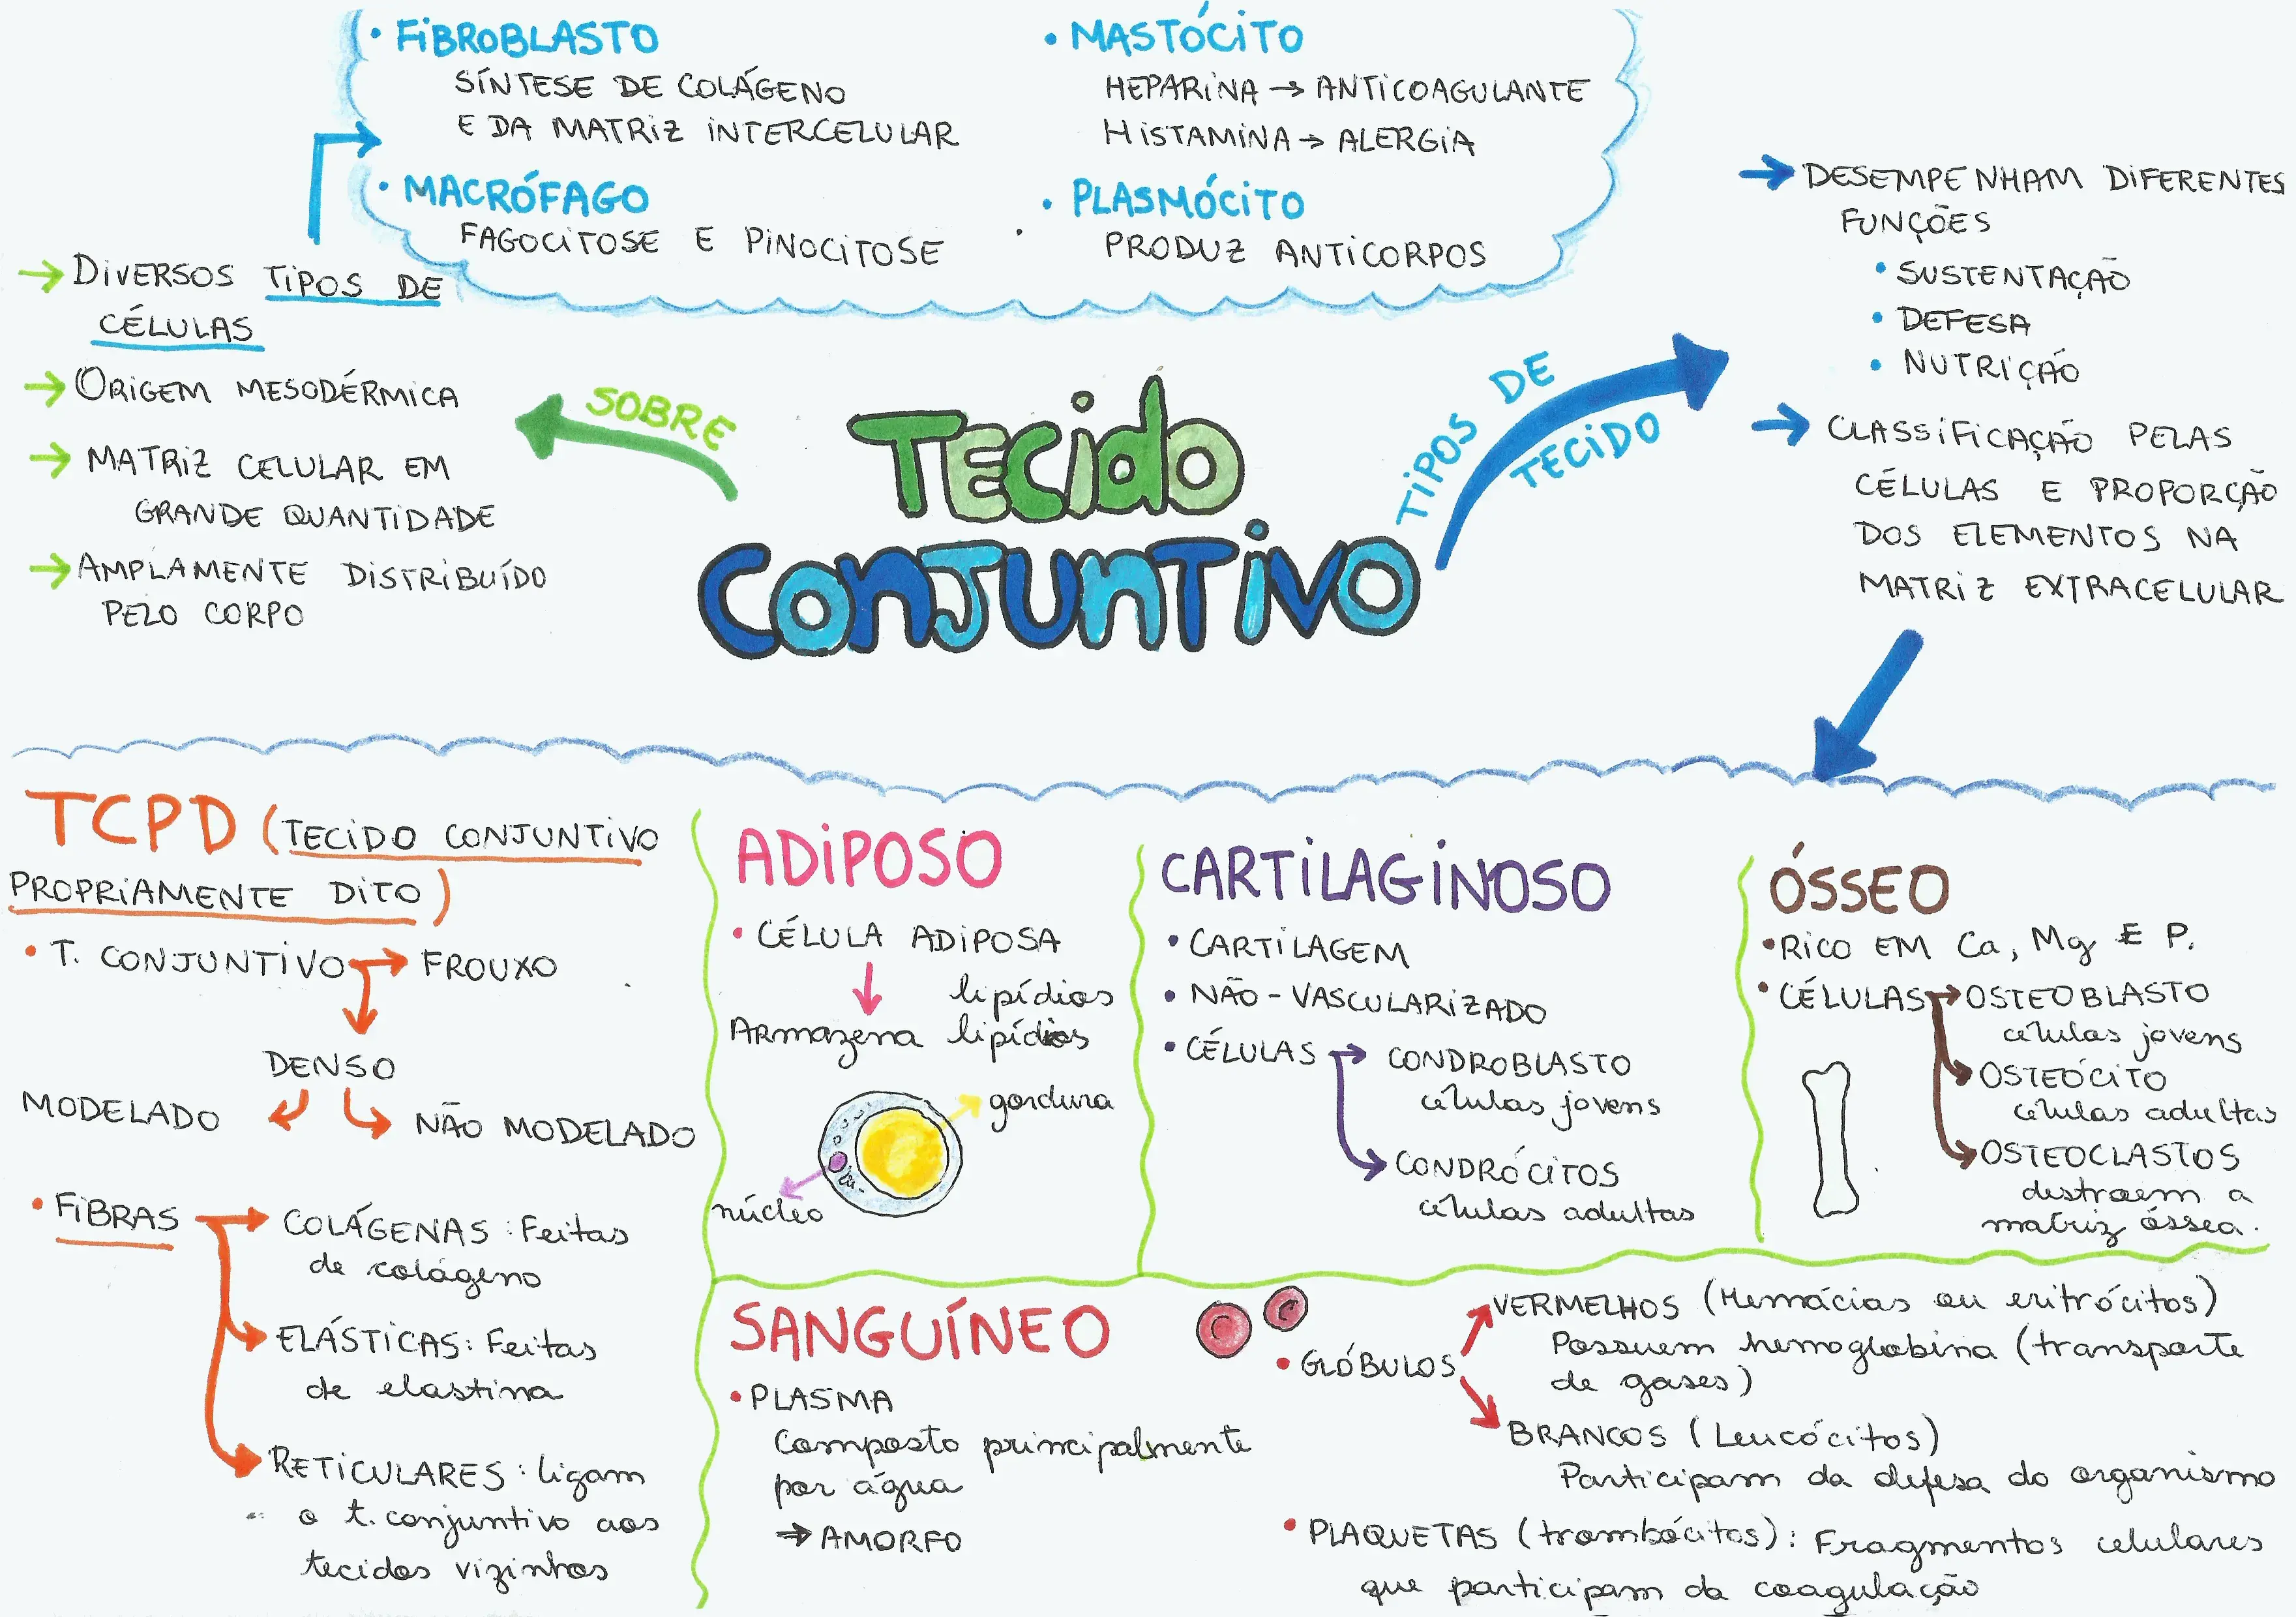 • FIBROBLASTO
SÍNTESE DE COLÁGENO
E DA MATRIZ INTERCELULAR
• MACRÓFAGO
FAGOCITOSE E PINOCITOSE
• MASTÓCITO
HEPARINA → ANTICOAGULANTE
HISTAMINA → ALERGIA
• PLASMÓCITO
PRODUZ ANTICORPOS
→ DIVERSOS TIPOS DE
CÉLULAS
→ ORIGEM MESODÉRMICA
→ MATRIZ CELULAR EM
GRANDE QUANTIDADE
→ AMPLAMENTE DISTRIBUÍDO
PELO CORPO
SOBRE
TECIDO
CONJUNTIVO
TIPOS DE
TECIDO
→ DESEMPENHAM DIFERENTES
FUNÇÕES
• SUSTENTAÇÃO
• DEFESA
• NUTRIÇÃO
→ CLASSIFICAÇÃO PELAS
CÉLULAS E PROPORÇÃO
DOS ELEMENTOS NA
MATRIZ EXTRACELULAR
TCPD (TECIDO CONJUNTIVO
PROPRIAMENTE DITO)
• T. CONJUNTIVO → FROUXO
DENSO
MODELADO
NÃO MODELADO
• FIBRAS → COLÁGENAS: Feitas
de colágeno
ELÁSTICAS: Feitas
de elastina
RETICULARES: ligam
o t. conjuntivo aos
tecidos vizinhos
ADIPOSO
• CÉLULA ADIPOSA
lipídios
Armazena lipídios
gordura
núcleo
CARTILAGINOSO
• CARTILAGEM
• NÃO-VASCULARIZADO
• CÉLULAS → CONDROBLASTO
células jovens
CONDRÓCITOS
células adultas
ÓSSEO
• RICO EM Ca, Mg E P.
• CÉLULAS → OSTEOBLASTO
células jovens
OSTEÓCITO
células adultas
OSTEOCLASTOS
destroem a
matriz óssea.
SANGUÍNEO
• PLASMA
Composto principalmente
por água
→ AMORFO
• GLÓBULOS
VERMELHOS (Hemácias ou eritrócitos)
Possuem hemoglobina (transporte
de gases)
BRANCOS (Leucócitos)
Participam da defesa do organismo
• PLAQUETAS (trombócitos): Fragmentos celulares
que participam da coagulação